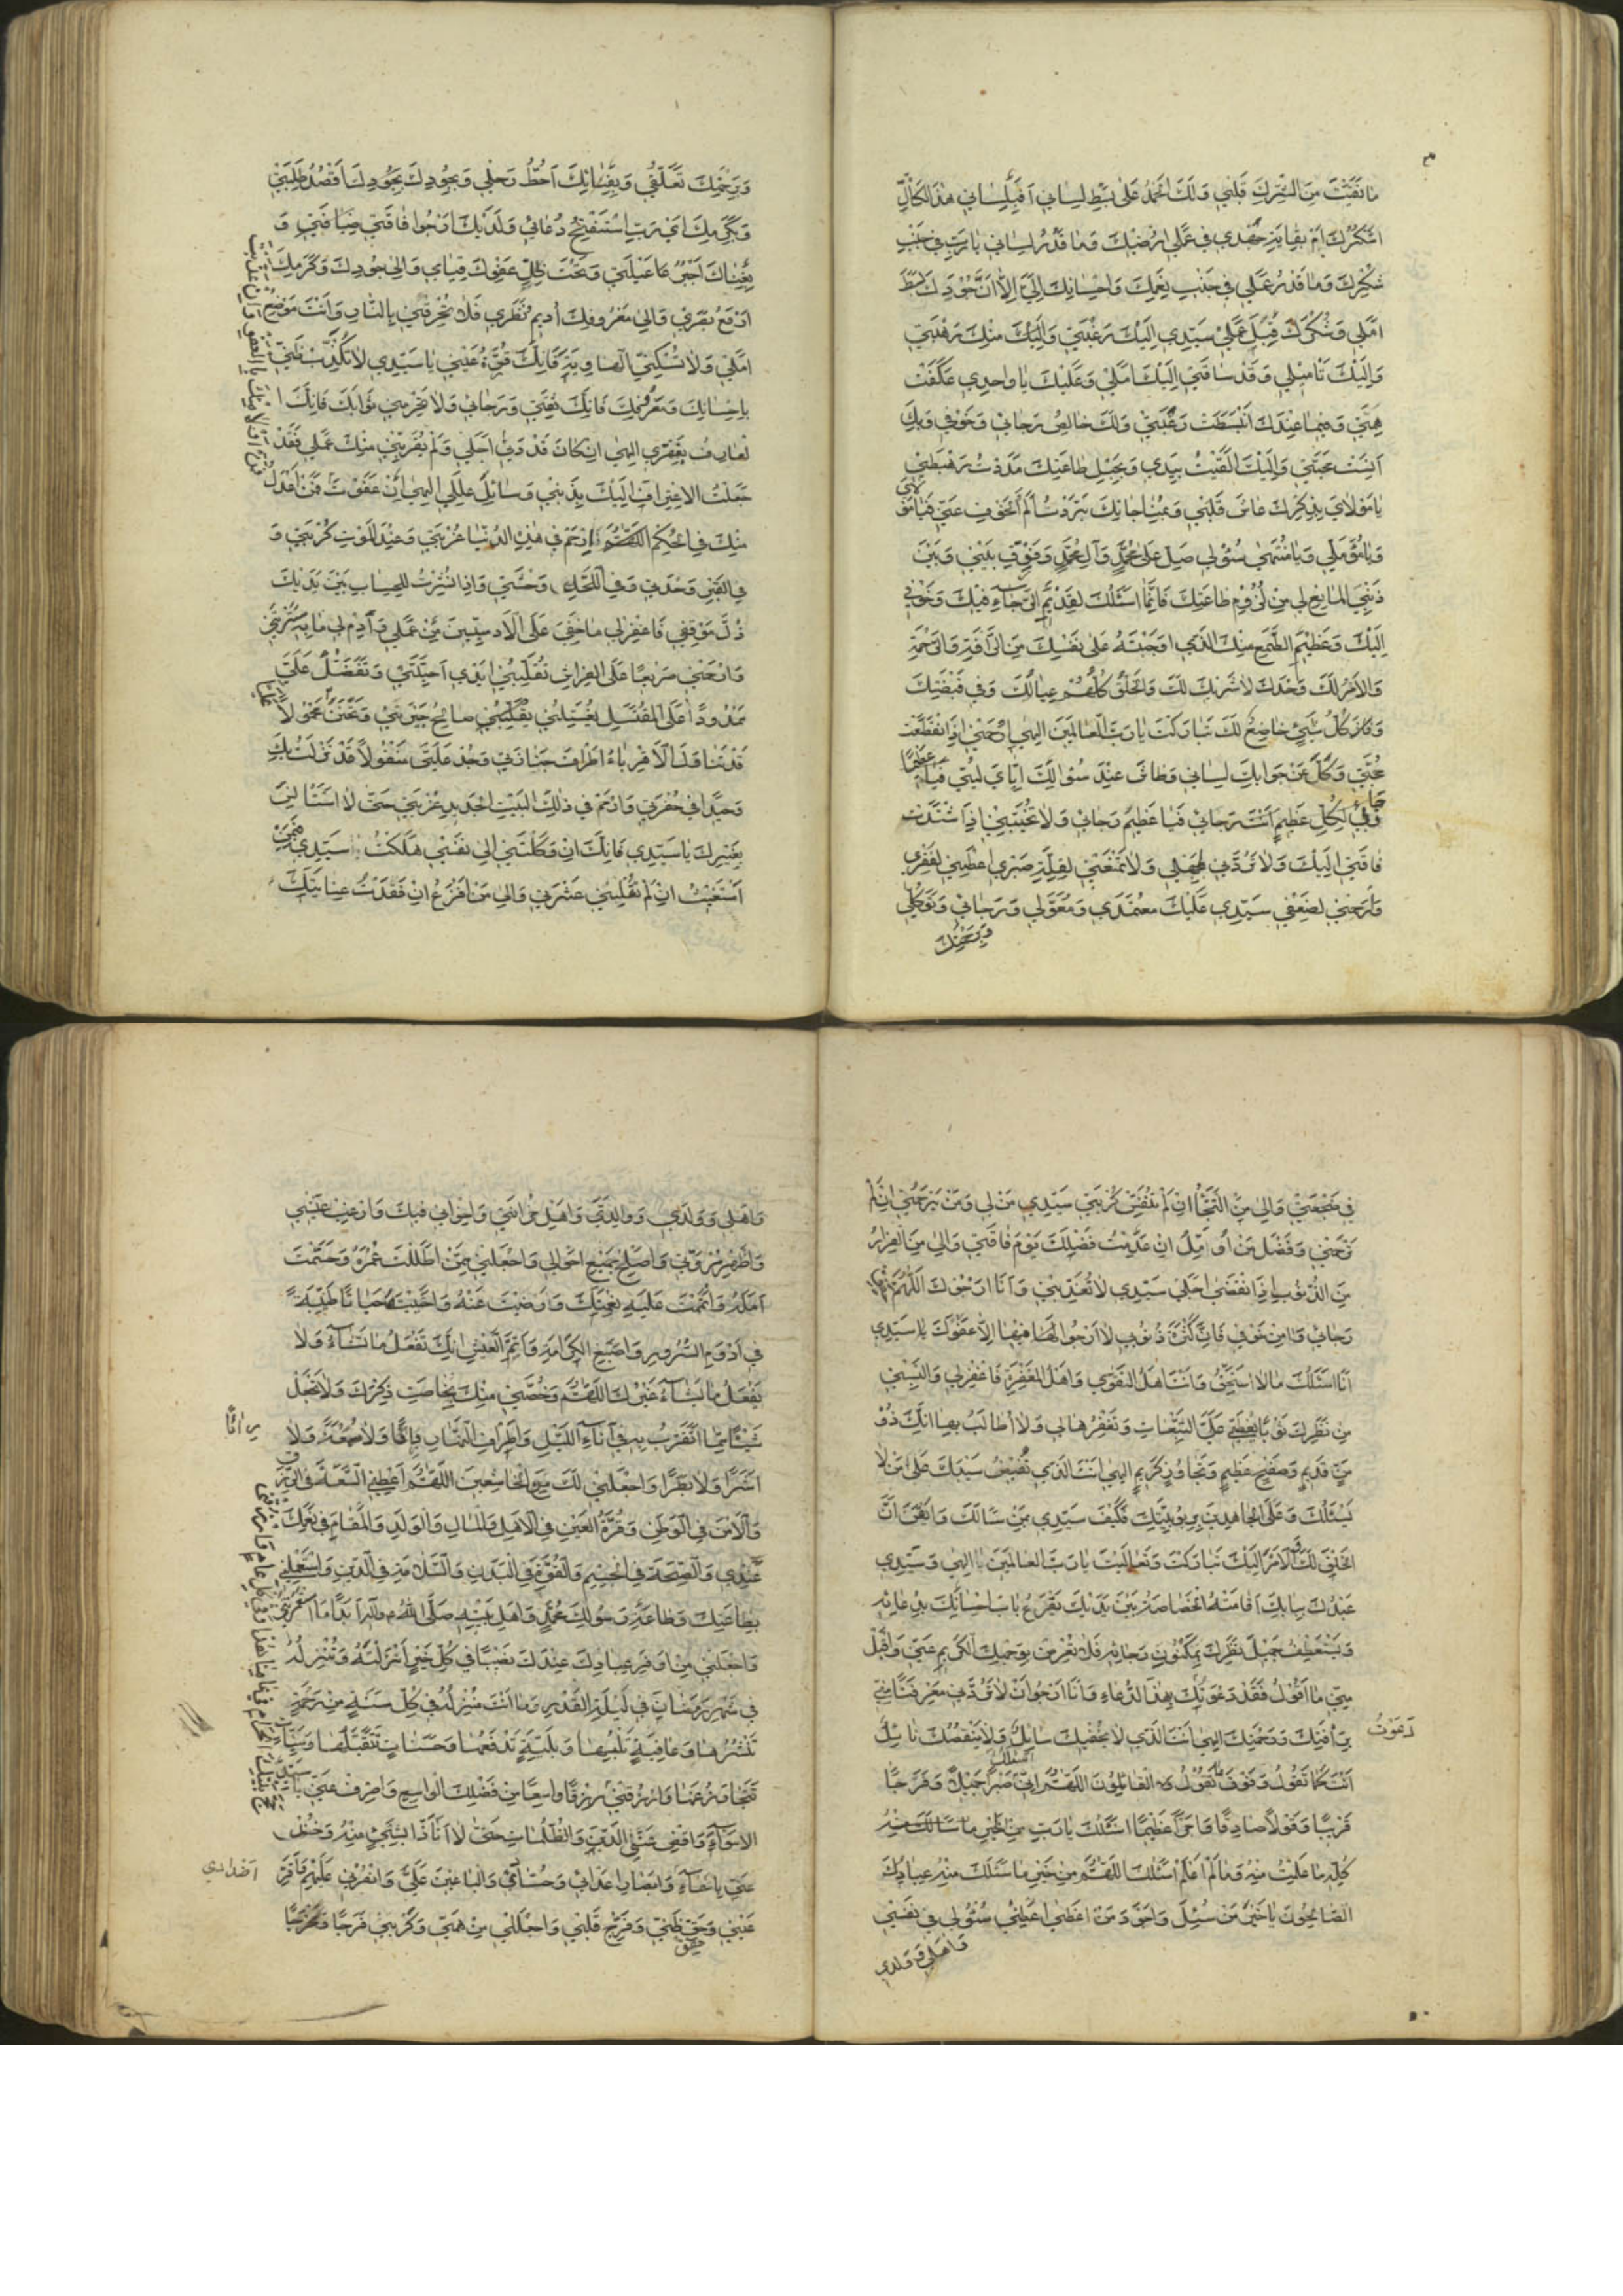 ما نقيت من الشرك قلبي ولك الحمد على بسط لساني افبلساني هذا الكال
اشكرك ام بغاية جهدي في عملي ارضيك وما قدر لساني يا رب في جنب
شكرك وما قدر عملي في جنب نعمك واحسانك الي الا ان جودك بسط
املي وشكرك قبل عملي سيدي اليك رغبتي واليك منك رهبتي
واليك تاميلي وقد ساقني اليك املي وعليك يا واحدي عكفت
همتي وفيما عندك انبسطت رغبتي ولك خالص رجائي وخوفي وبك
انست محبتي واليك القيت بيدي وبحبل طاعتك مددت رهبتي
يا مولاي بذكرك عاش قلبي وبمناجاتك بردت الم الخوف عني فيا مو
لاي
ويا مؤملي ويا منتهى سؤلي صل على محمد وآل محمد وفرق بيني وبين
ذنبي المانع لي من لزوم طاعتك فانما اسئلك لقديم الرجاء فيك وخوفي
اليك وعظيم الطمع منك الذي اوجبته على نفسك من الرافة والرحمة
والامر لك وحدك لا شريك لك والخلق كلهم عيالك وفي قبضتك
وكل شيء خاضع لك تباركت يا رب العالمين الهي ارحمني اذا انقطعت
حجتي وكل عن جوابك لساني وطاش عند سؤالك اياي لبي فيا عظيما
يرجى لكل عظيم انت رجائي فيا عظيم رجائي ولا تخيبني اذا اشتدت
فاقتي اليك ولا تردني لجهلي ولا تمنعني لقلة صبري اعطني لفقري
وارحمني لضعفي سيدي عليك معتمدي ومعولي ورجائي وتوكلي
وبرحمتك
وبرحمتك تعلقي وبفنائك احط رحلي وبجودك بجودك اقصد طلبتي
وبكرمك اي رب استفتح دعائي ولديك ارجوا فاقتي ضيافتي و
بغناك اجبر عا عيلتي وتحت ظل عفوك قيامي والى جودك وكرمك
ارفع بصري والى معروفك اديم نظري فلا تحرقني بالنار وانت موضع
املي ولا تسكني الهاوية فانك قرة عيني يا سيدي لا تكذب ظني
باحسانك ومعروفك فانك ثقتي ورجائي ولا تحرمني ثوابك فانك ا
لعارف بفقري الهي ان كان قد دنى اجلي ولم يقربني منك عملي فقد
جعلت الاعتراف اليك بذنبي وسائل عللي الهي ان عفوت فمن اولى
منك في الحكم اللهم ارحم في هذه الدنيا غربتي وعند الموت كربتي و
في القبر وحدتي وفي اللحد وحشتي واذا نشرت للحساب بين يديك
ذل موقفي فاغفر لي ما خفي على الآدميين من عملي وادم لي ما به سترتني
وارحمني صريعا على الفراش تقلبني ايدي احبتي وتفضل علي
ممدودا على المغتسل يغسلني يقلبني صالح جيرتي وتحنن محمولا
قد تناول الاقرباء اطراف جنازتي وجد علي منقولا قد نزلت بك
وحيدا في حفرتي وارحم في ذلك البيت الجديد غربتي حتى لا استانس
بغيرك يا سيدي فانك ان وكلتني الى نفسي هلكت سيدي فبمن
استغيث ان لم تقلني عثرتي والى من افزع ان فقدت عنايتك
في ضجعتي والى من التجأ ان لم تنفس كربتي سيدي من لي ومن يرحمني ان لم
ترحمني وفضل من اومل ان عدمت فضلك يوم فاقتي والى من الفرار
من الذنوب اذا انقضى اجلي سيدي لا تعذبني وانا ارجوك اللهم حقق
رجائي وامن خوفي فان كثرة ذنوبي لا ارجوا لها فيها الا عفوك يا سيدي
انا اسئلك ما لا استحق وانت اهل التقوى واهل المغفرة فاغفر لي والبسني
من نظرك ثوبا يغطي علي التبعات وتغفرها لي ولا اطالب بها انك ذو
من قديم وصفح عظيم وتجاوز كريم الهي انت الذي تفيض سيبك على من لا
يسئلك وعلى الجاهدين بربوبيتك فكيف سيدي بمن سالك وايقن ان
الخلق لك والامر اليك تباركت وتعاليت يا رب العالمين يا الهي وسيدي
عبدك ببابك اقامته الخصاصة بين يديك يقرع باب احسانك بدعائه
ويستعطف جميل نظرك بمكنون رجائه فلا تعرض بوجهك الكريم عني واقبل
مني ما اقول فقد دعوتك بهذا الدعاء وانا ارجوا ان لا تردني معرفتا مني
برافتك ورحمتك الهي انت الذي لا يحفيك سائل ولا ينقصك نائل
دعوت
انت كما تقول وفوق ما نقول اللهم اني اسئلك صبرا جميلا وفرجا
قريبا وقولا صادقا واجرا عظيما اسئلك يا رب من الخير ما سالك منه
كله ما علمت منه وما لم اعلم اسئلك اللهم من خير ما سئلك منه عبادك
الصالحون يا خير من سئل واجود من اعطى اعطني سؤلي في نفسي
واهلي وولدي
واهلي وولدي ووالدي واهل حزانتي واخواني فيك وارغد عيشي
واظهر مروتي واصلح جميع احوالي واجعلني ممن اطلت عمره وحسنت
عمله واتممت عليه نعمتك ورضيت عنه واحييته حياتا طيبة
في ادوم السرور واسبغ الكرامة واتم العيش انك تفعل ما تشاء ولا
يفعل ما يشاء غيرك اللهم وخصني منك بخاصة ذكرك ولا تجعل
شيئا مما اتقرب به في آناء الليل واطراف النهار رياء ولا سمعة ولا
اشرا ولا بطرا واجعلني لك من الخاشعين اللهم اعطني السعة في الرزق
والامن في الوطن وقرة العين في الاهل والمال والولد والمقام في نعمك
عندي والصحة في الجسم والقوة في البدن والسلامة في الدين واستعملني
بطاعتك وطاعة رسولك محمد واهل بيته صلى الله عليه وآله ابدا ما استعمرتني
واجعلني من اوفر عبادك عندك نصيبا في كل خير انزلته وتنزله
في شهر رمضان في ليلة القدر وما انت منزله في كل سنة من رحمة
تنشرها وعافية تلبسها وبلية تدفعها وحسنات تتقبلها وسيئات
تتجاوز عنها وارزقني رزقا واسعا من فضلك الواسع واصرف عني يا سيدي
الاسواء واقض عني الدين والظلمات حتى لا اتاذا بشيء منه وخذ
عني باسماع وابصار اعدائي وحسادي والباغين علي وانصرني عليهم واقر
اضدادي
عيني وحقق ظني وفرح قلبي واجعل لي من همي وكربي فرجا ومخرجا
حقق